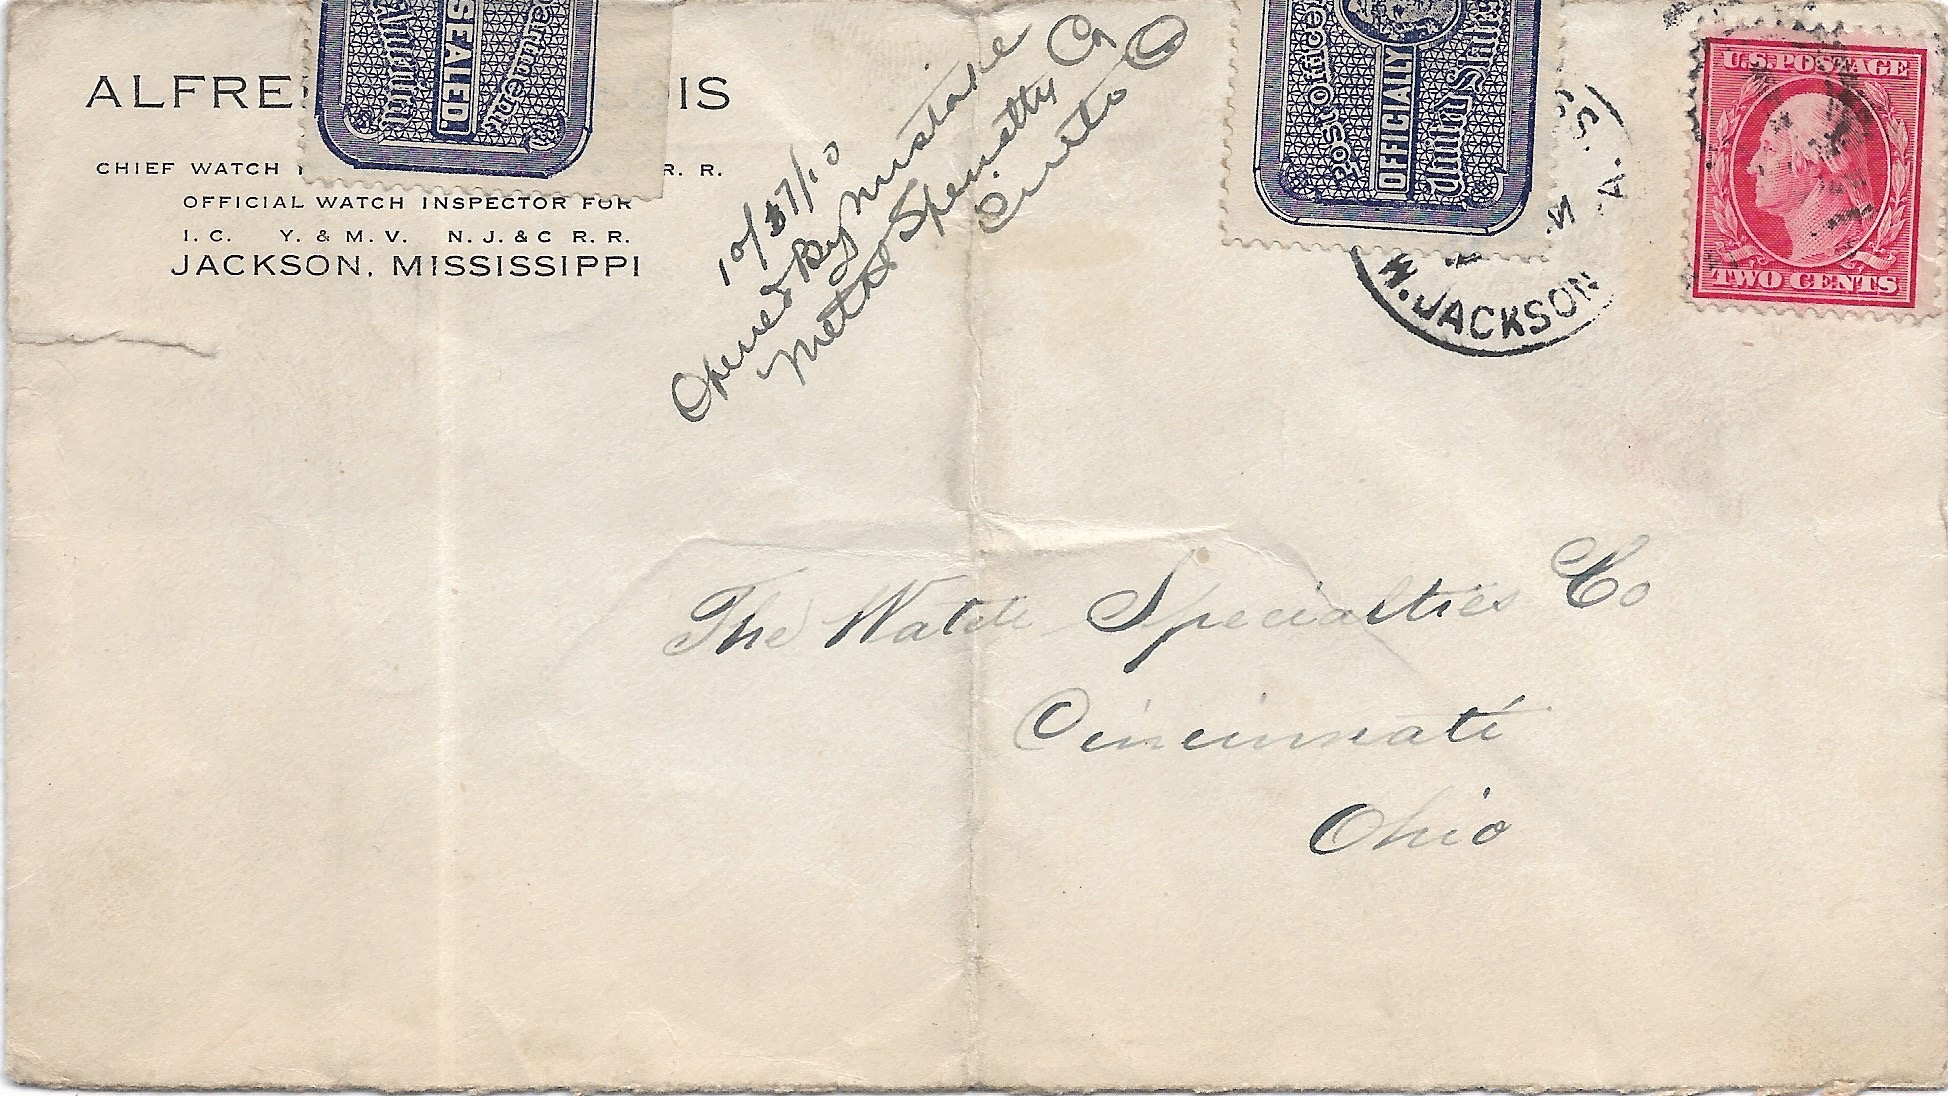 ALFRE IS
CHIEF WATCH R. R.
OFFICIAL WATCH INSPECTOR FOR
I. C. Y. & M. V. N. J. & C R. R.
JACKSON, MISSISSIPPI
SEALED.
Post Office
OFFICIALLY
United States
10/27/10
Opened By Mistake
Metal Specialty Co
Cinti O
JACKSON
U.S. POSTAGE
TWO CENTS
The Watch Specialties Co
Cincinnati
Ohio